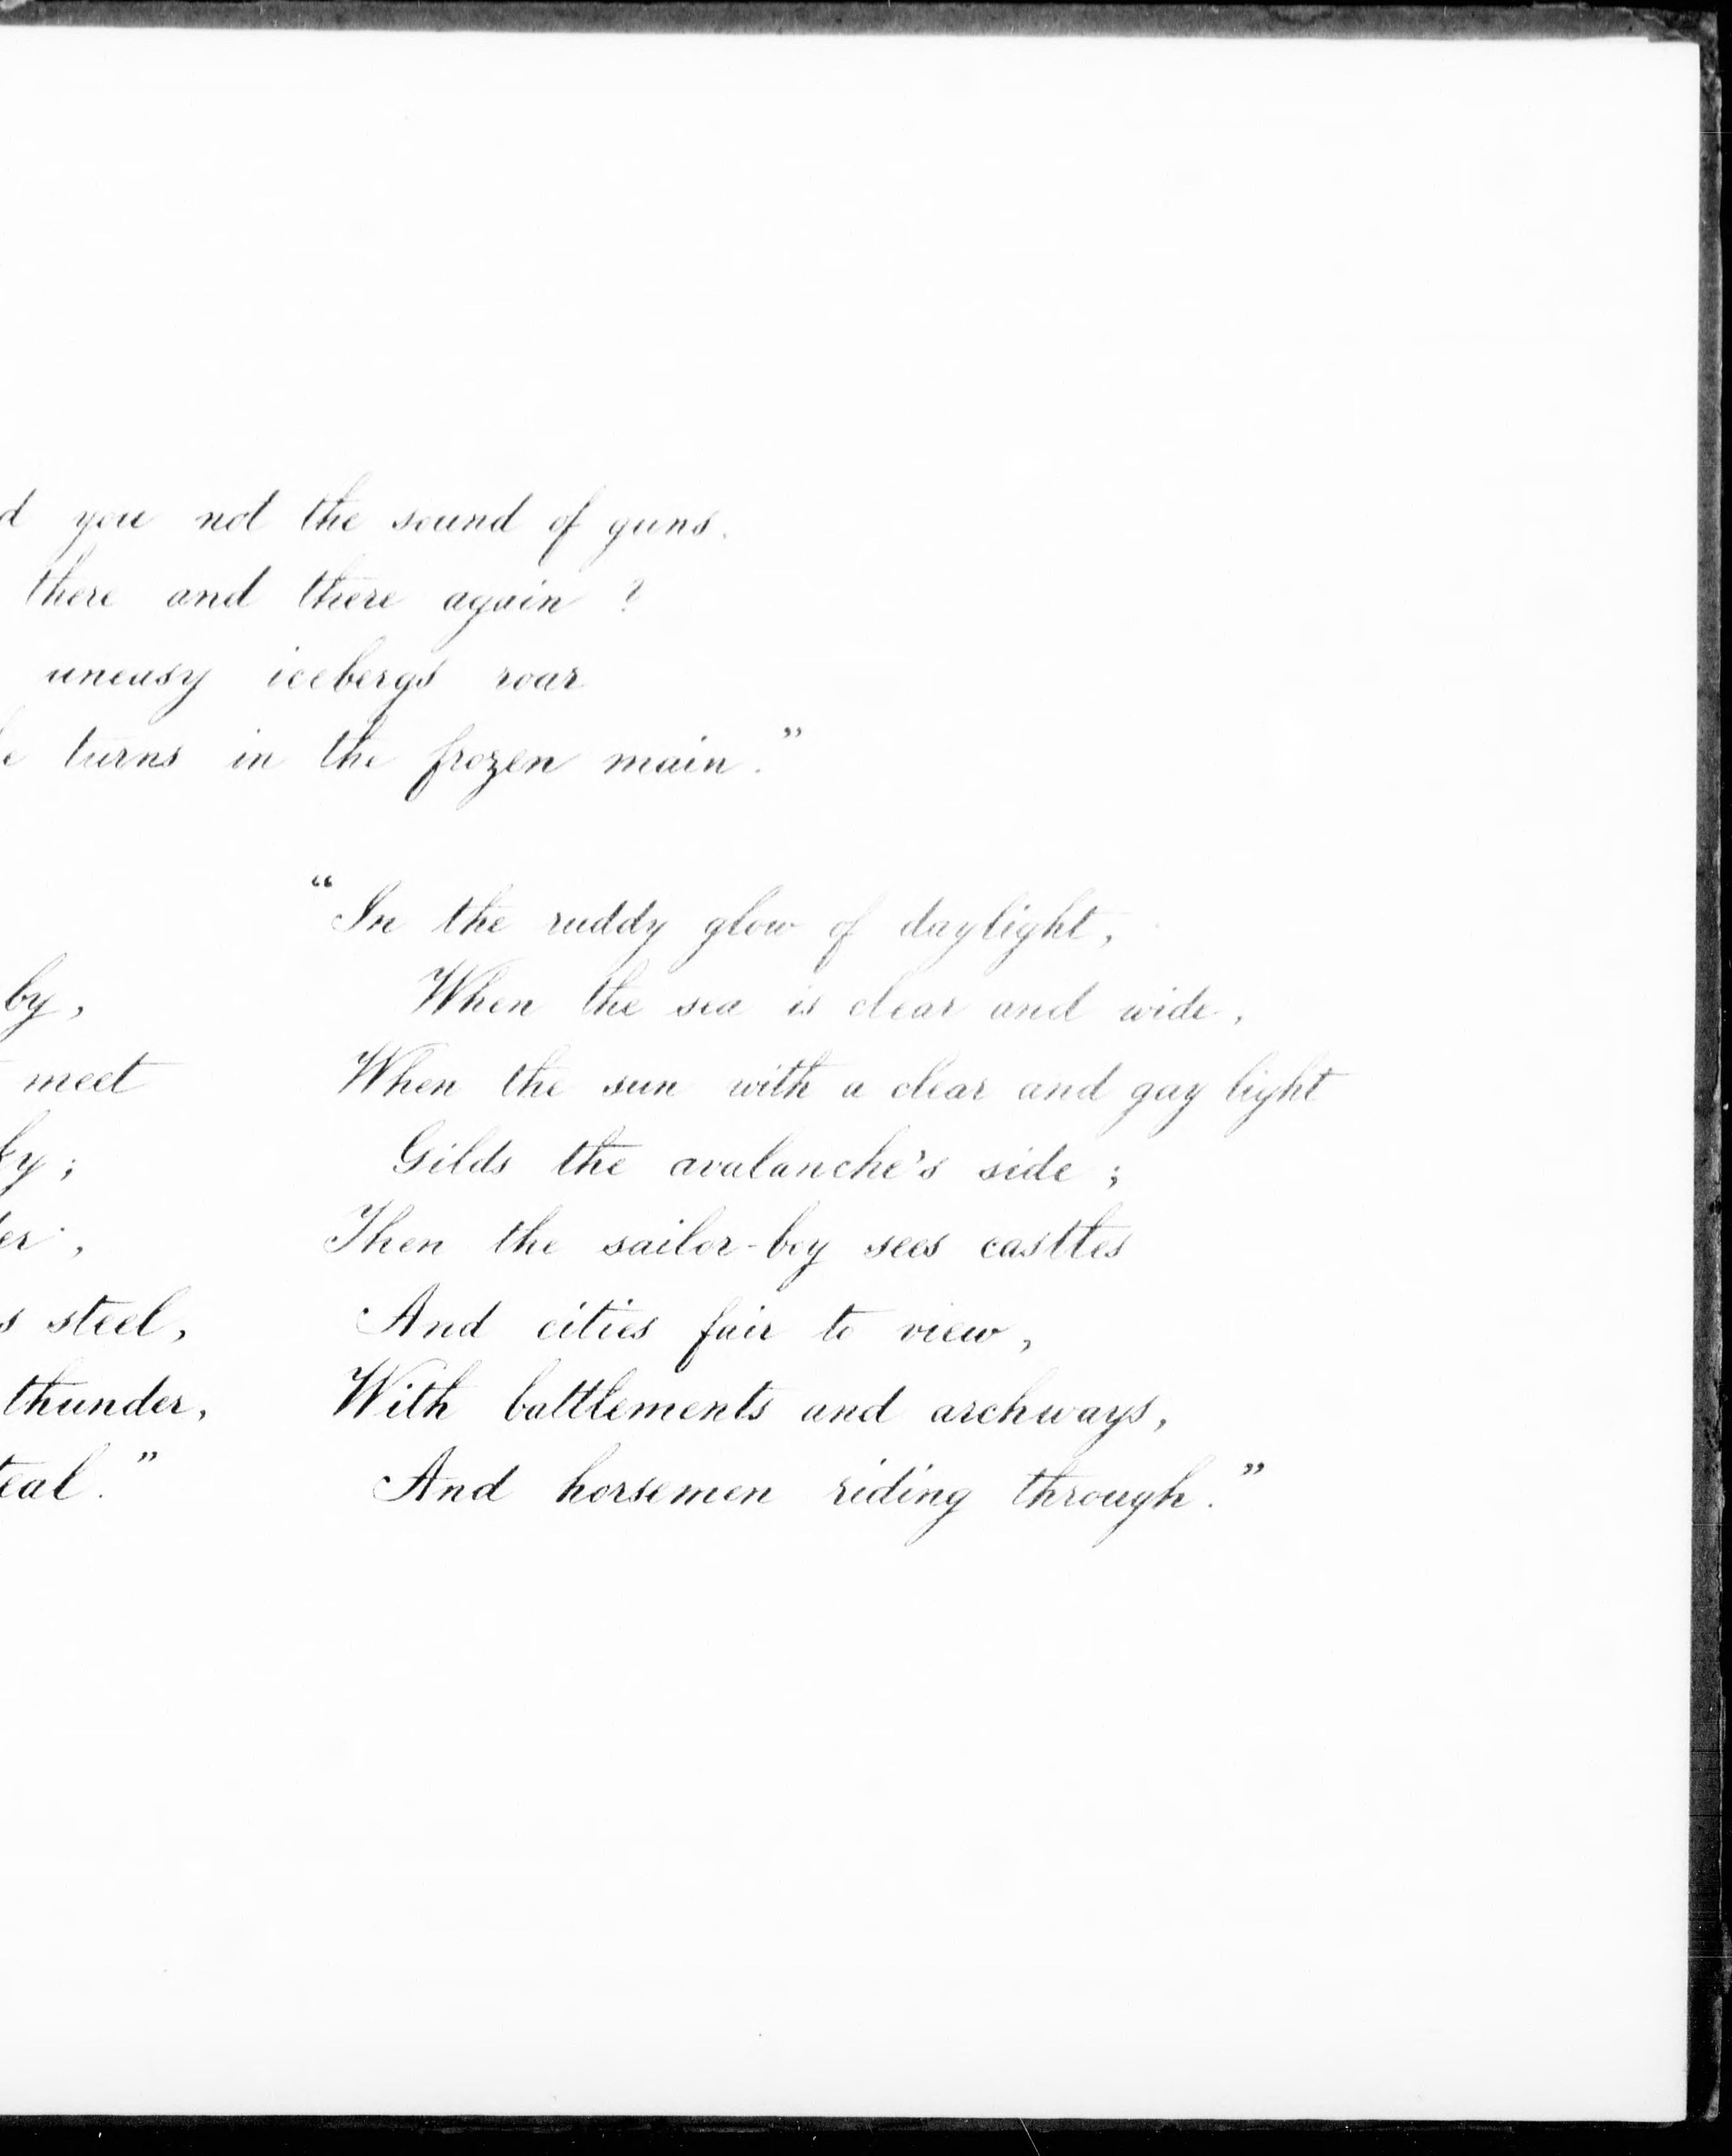 d you not the sound of guns.
there and there again?
uneasy icebergs roar
e turns in the frozen main."
by,
meet
ky;
er,
s steel,
thunder,
eal."
"In the ruddy glow of daylight,
When the sea is clear and wide,
When the sun with a clear and gay light
Gilds the avalanche's side;
Then the sailor-boy sees castles
And cities fair to view,
With battlements and archways,
And horsemen riding through."